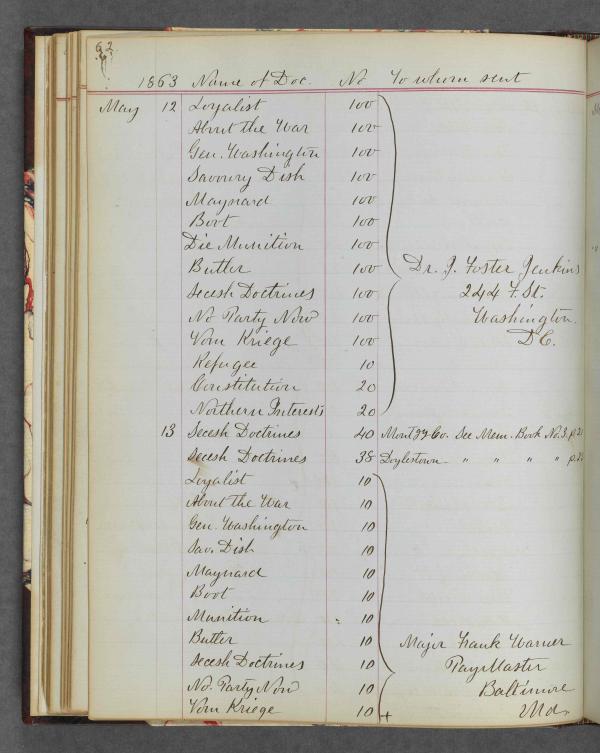 62
1863 Name of Doc. No To whom sent
May 12 Loyalist 100
About the War 100
Gen. Washington 100
Savoury Dish 100
Maynard 100
Boot 100
Die Munition 100
Butler 100 Dr. J. Foster Jenkins
Secesh Doctrines 100 244 F. St.
No Party Now 100 Washington.
Vom Kriege 100 D.C.
Refugee 10
Constitution 20
Northern Interests 20
13 Secesh Doctrines 40 Montgy Co. See Mem. Book No. 3. p.
Secesh Doctrines 38 Doylestown " " " " p.
Loyalist 10
About the War 10
Gen. Washington 10
Sav. Dish 10
Maynard 10
Boot 10
Munition 10
Butler 10 Major Frank Warner
Secesh Doctrines 10 PayMaster
No. Party Now 10 Baltimore
Vom Kriege 10 Md.